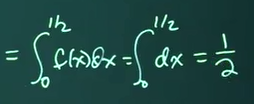 = ∫₀^{1/2} f(x)dx = ∫₀^{1/2} dx = 1/2